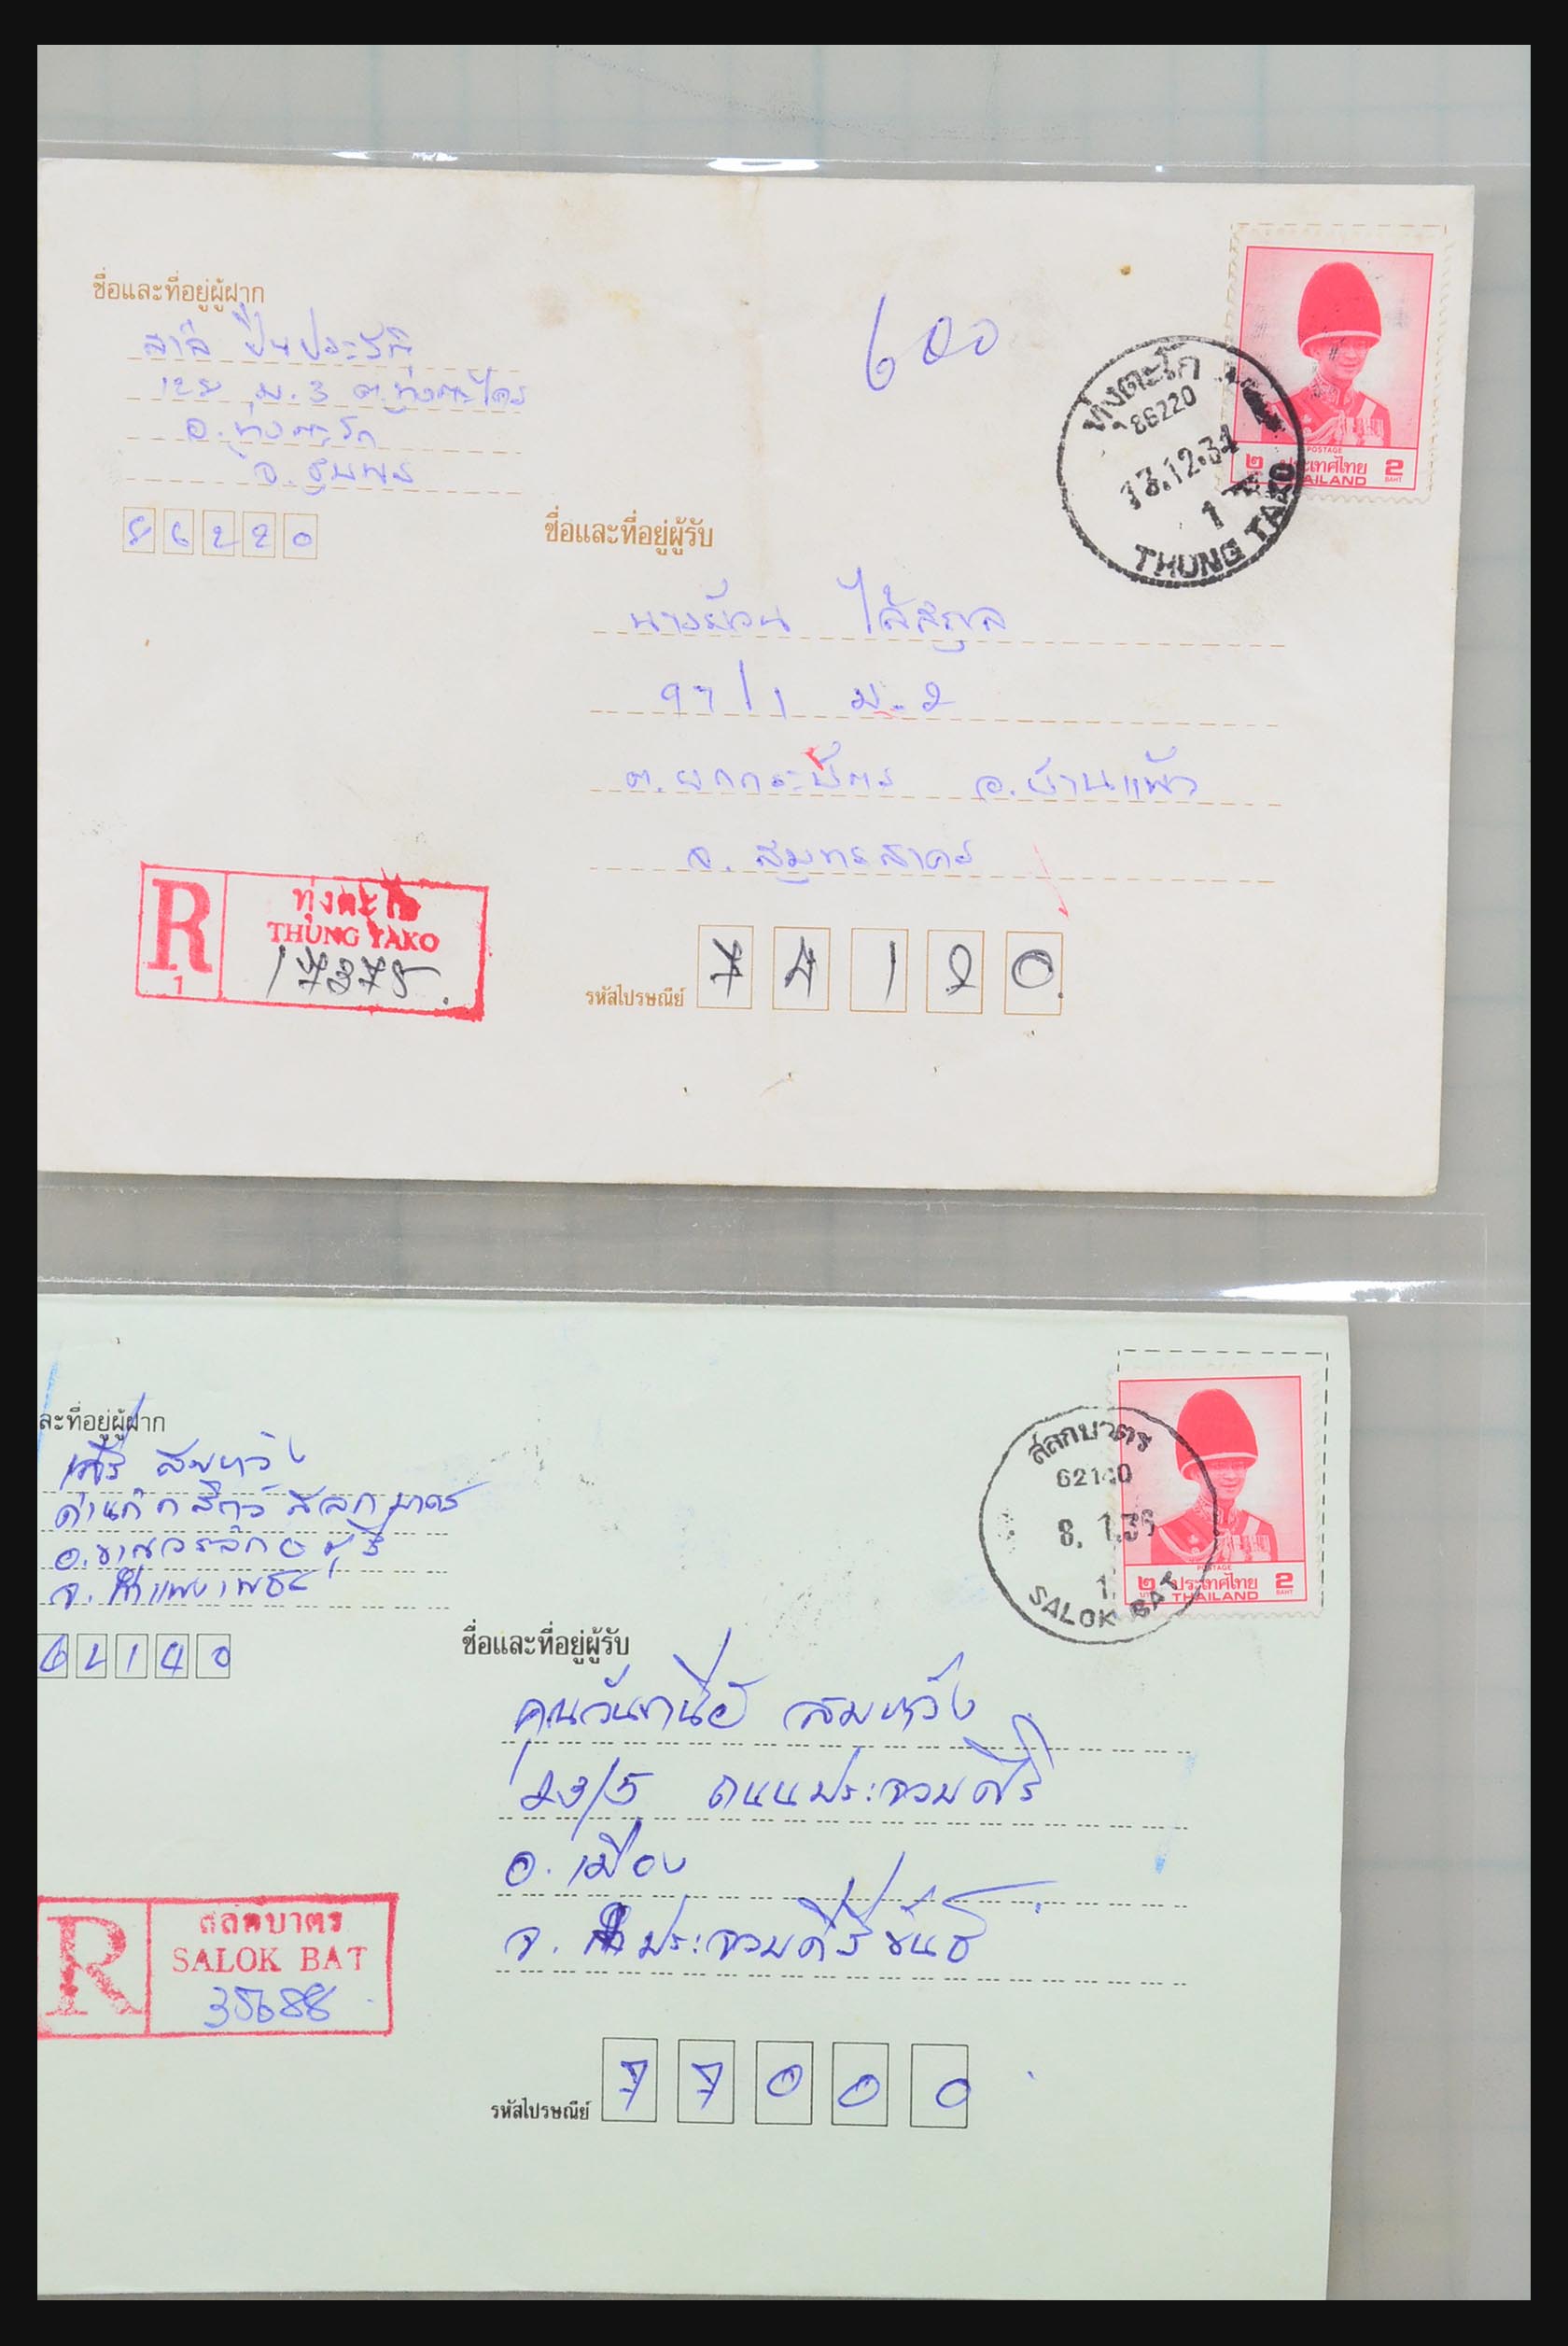 ชื่อและที่อยู่ผู้ฝาก
อ. ทุ่งตะโก
จ. ชุมพร
86220
600
ทุ่งตะโก
86220
13.12.34
1
THUNG TAKO
POSTAGE
๒ ประเทศไทย 2
THAILAND BAHT
ชื่อและที่อยู่ผู้รับ
97/1 ม.2
ต.ยกกระบัตร อ.บ้านแพ้ว
จ. สมุทรสาคร
R 1
ทุ่งตะโก
THUNG TAKO
17375
รหัสไปรษณีย์ 74120
ละที่อยู่ผู้ฝาก
สลกบาตร
อ.ขาณุวรลักษบุรี
จ. กำแพงเพชร
62140
สลกบาตร
62140
8. 1.36
1
SALOK BAT
POSTAGE
๒ ประเทศไทย 2
บาท THAILAND BAHT
ชื่อและที่อยู่ผู้รับ
คุณวันทนีย์ สมหวัง
123/5 ถนนประจวบศิริ
อ. เมือง
จ. ประจวบคีรีขันธ์
R
สลกบาตร
SALOK BAT
35688
รหัสไปรษณีย์ 77000